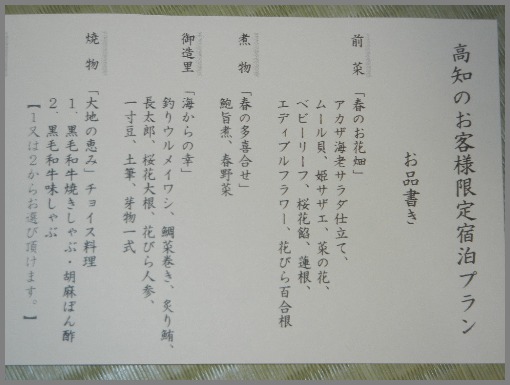 高知のお客様限定宿泊プラン
お品書き
前菜「春のお花畑」
アカザ海老サラダ仕立て、
ムール貝、姫サザエ、菜の花、
ベビーリーフ、桜花餡、蓮根、
エディブルフラワー、花びら百合根
煮物「春の多喜合せ」
鮑旨煮、春野菜
御造里「海からの幸」
釣りウルメイワシ、鯛菜巻き、炙り鮪、
長太郎、桜花大根、花びら人参、
一寸豆、土筆、芽物一式
焼物「大地の恵み」チョイス料理
1．黒毛和牛焼きしゃぶ・胡麻ぽん酢
2．黒毛和牛味しゃぶ
【1又は2からお選び頂けます。】